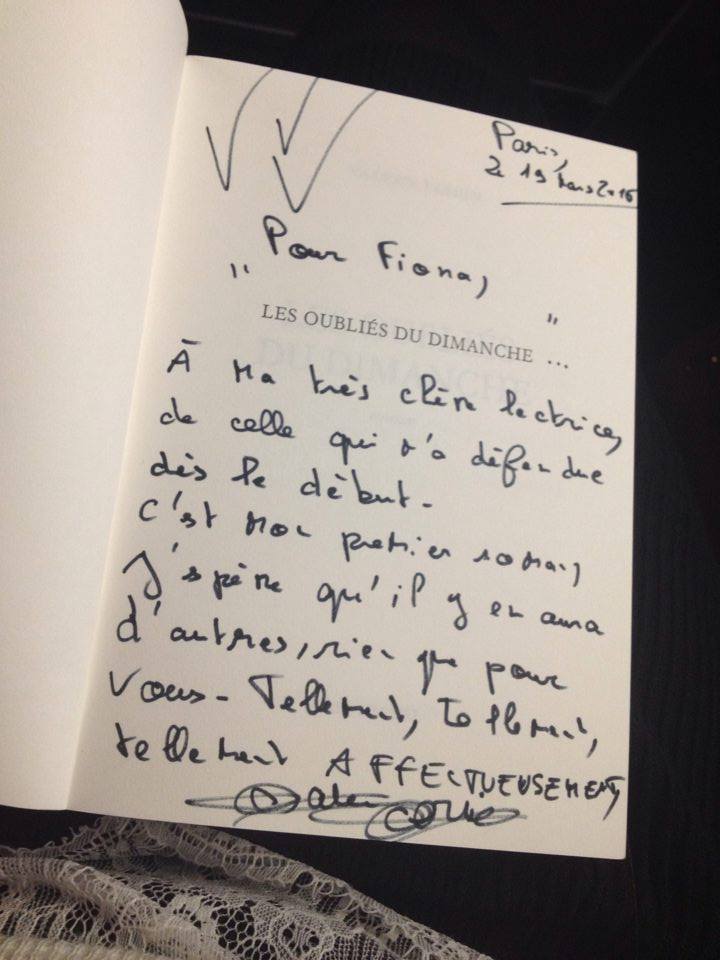 Paris,
le 19 mars 2016
Pour Fiona,
"
LES OUBLIÉS DU DIMANCHE ...
"
À ma très chère lectrice,
de celle qui m'a défendue
dès le début -
C'est mon premier roman,
J'espère qu'il y en aura
d'autres, rien que pour
vous - Tellement, Tellement,
tellement AFFECTUEUSEMENT,